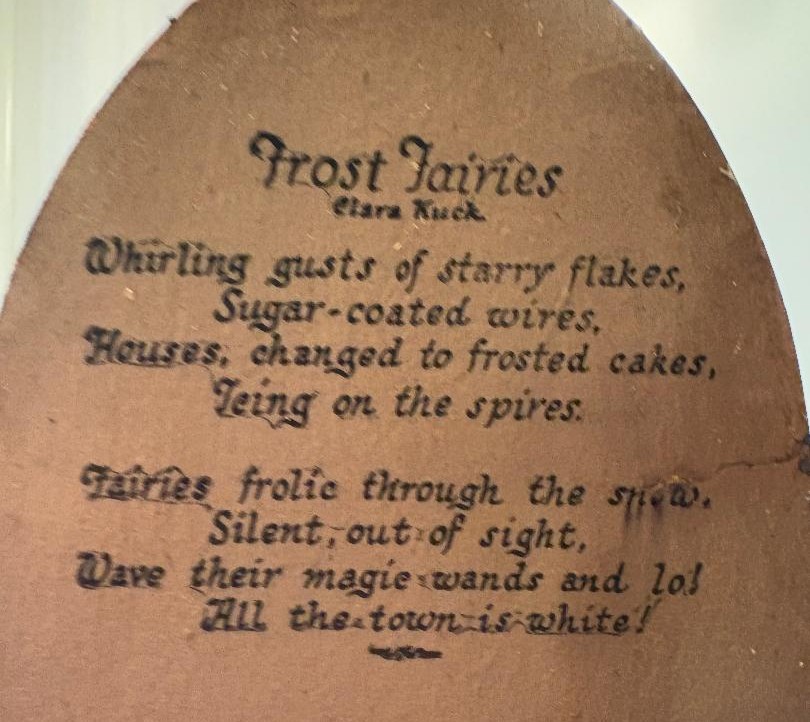 Frost Fairies
Clara Kuck.
Whirling gusts of starry flakes,
Sugar-coated wires,
Houses, changed to frosted cakes,
Icing on the spires.
Fairies frolic through the snow,
Silent, out of sight,
Wave their magic wands and lo!
All the town is white!